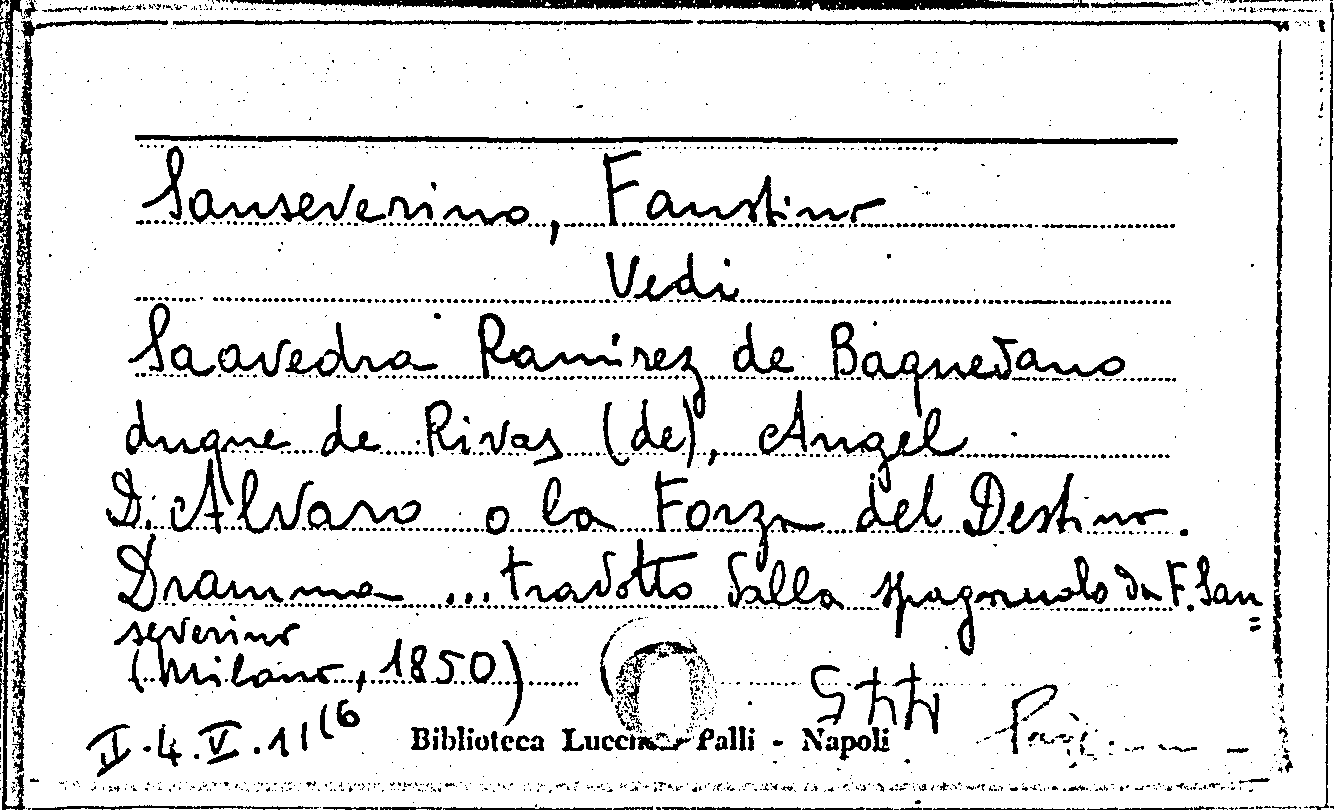 Sanseverino, Faustino
Vedi
Saavedra Ramirez de Baquedano
duque de Rivas (de), Angel
D. Alvaro o la Forza del Destino.
Dramma ... tradotto dalla spagnuolo da F. San=
severino
(Milano, 1850)
II.4.V.11(6
Biblioteca Lucchesi Palli - Napoli